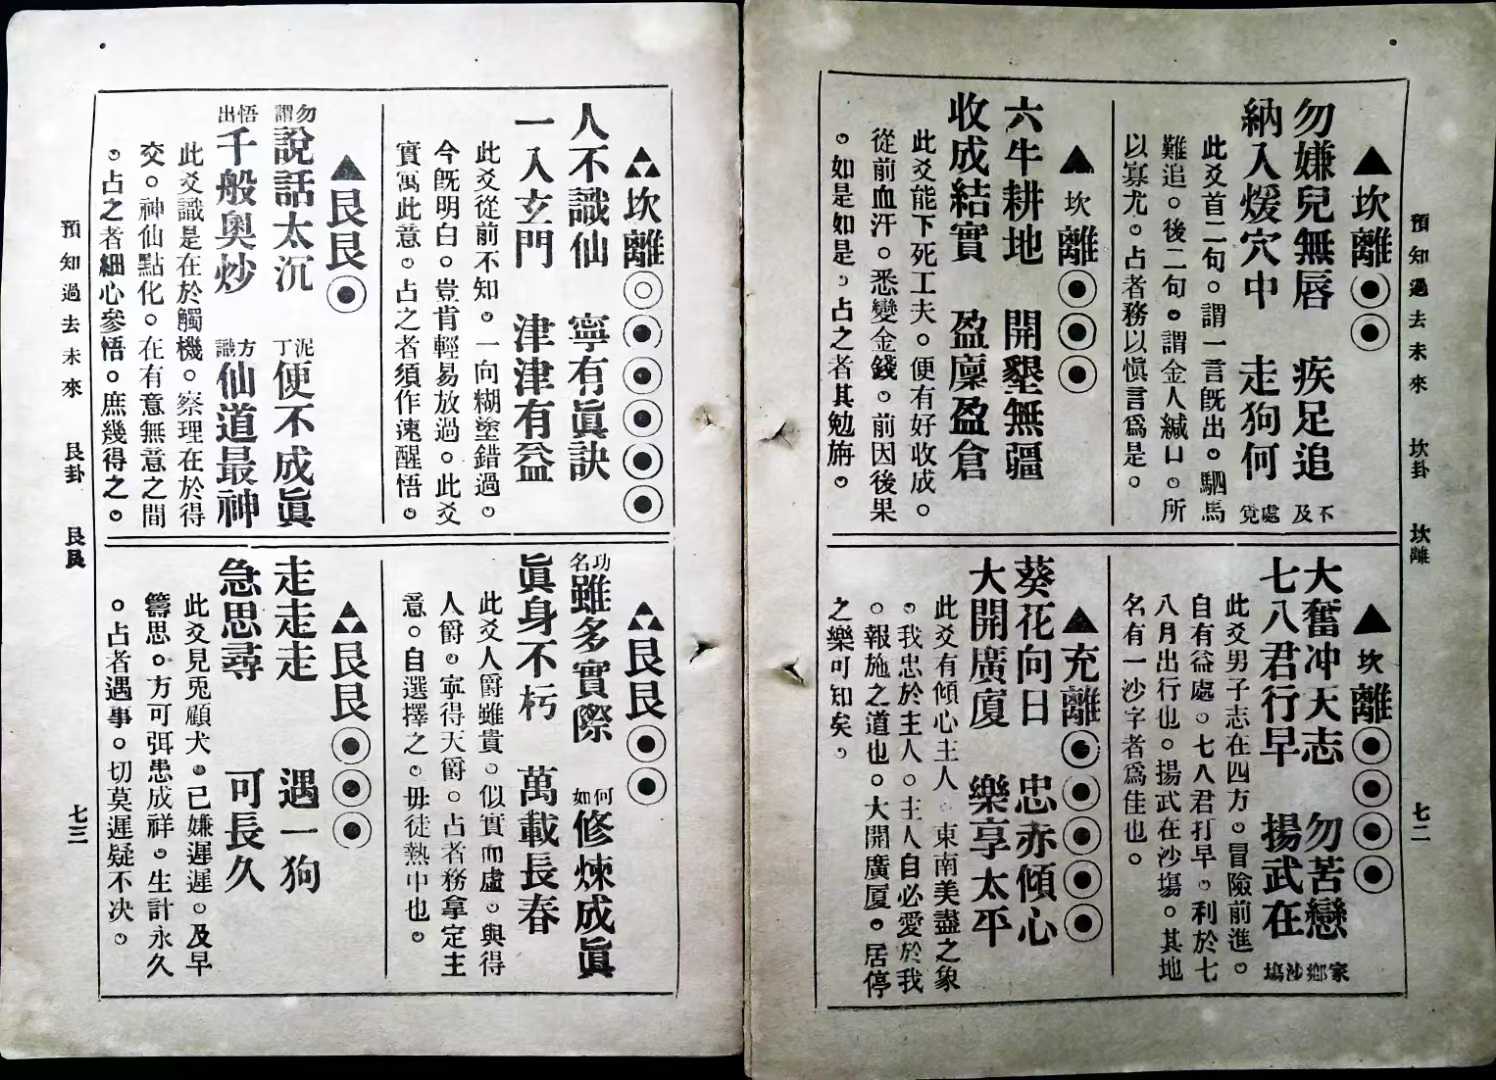 預知過去未來 坎卦 坎離 七二
▲坎離
勿嫌兒無唇 疾足追不及
納入煖穴中 走狗何處覓
此爻首二句。謂一言旣出。駟馬
難追。後二句。謂金人緘口。所
以寡尤。占者務以愼言爲是。
▲坎離
六牛耕地 開墾無疆
收成結實 盈廩盈倉
此爻能下死工夫。便有好收成。
從前血汗。悉變金錢。前因後果
。如是如是。占之者其勉旃。
▲坎離
大奮冲天志 勿苦戀家鄉
七八君行早 揚武在沙塲
此爻男子志在四方。冒險前進。
自有益處。七八君打早。利於七
八月出行也。揚武在沙塲。其地
名有一沙字者爲佳也。
▲充離
葵花向日 忠赤傾心
大開廣廈 樂享太平
此爻有傾心主人。東南美盡之象
。我忠於主人。主人自必愛於我
。報施之道也。大開廣厦。居停
之樂可知矣。
坎離
人不識仙 寧有眞訣
一入玄門 津津有益
此爻從前不知。一向糊塗錯過。
今旣明白。豈肯輕易放過。此爻
實寓此意。占之者須作速醒悟。
▲艮艮
勿謂說話太沉 泥丁便不成眞
悟出千般奧炒 方識仙道最神
此爻識是在於觸機。察理在於得
交。神仙點化。在有意無意之間
。占之者細心參悟。庶幾得之。
艮艮
功名雖多實際 何如修煉成眞
眞身不朽 萬載長春
此爻人爵雖貴。似實而虛。與得
人爵。寧得天爵。占者務拿定主
意。自選擇之。毋徒熱中也。
艮艮
走走走 遇一狗
急思尋 可長久
此爻見兎顧犬。已嫌遲遲。及早
籌思。方可弭患成祥。生計永久
。占者遇事。切莫遲疑不决。
預知過去未來 艮卦 艮艮 七三